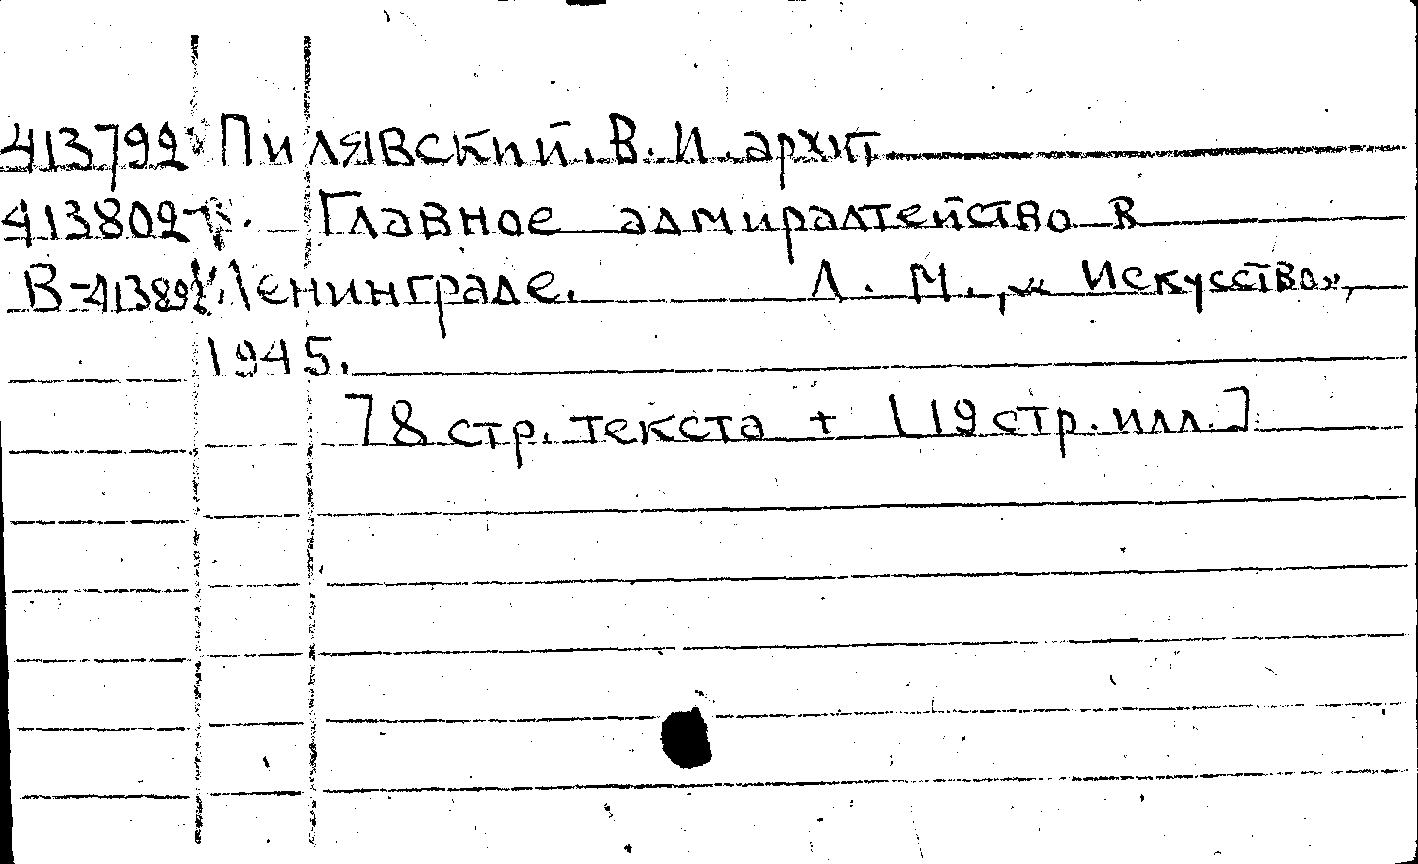 413792 Пилявский. В. И. архит
413802 Главное адмиралтейство в
В-413892 Ленинграде. Л. М., „Искусство",
1945.
78 стр. текста + [19 стр. илл.]